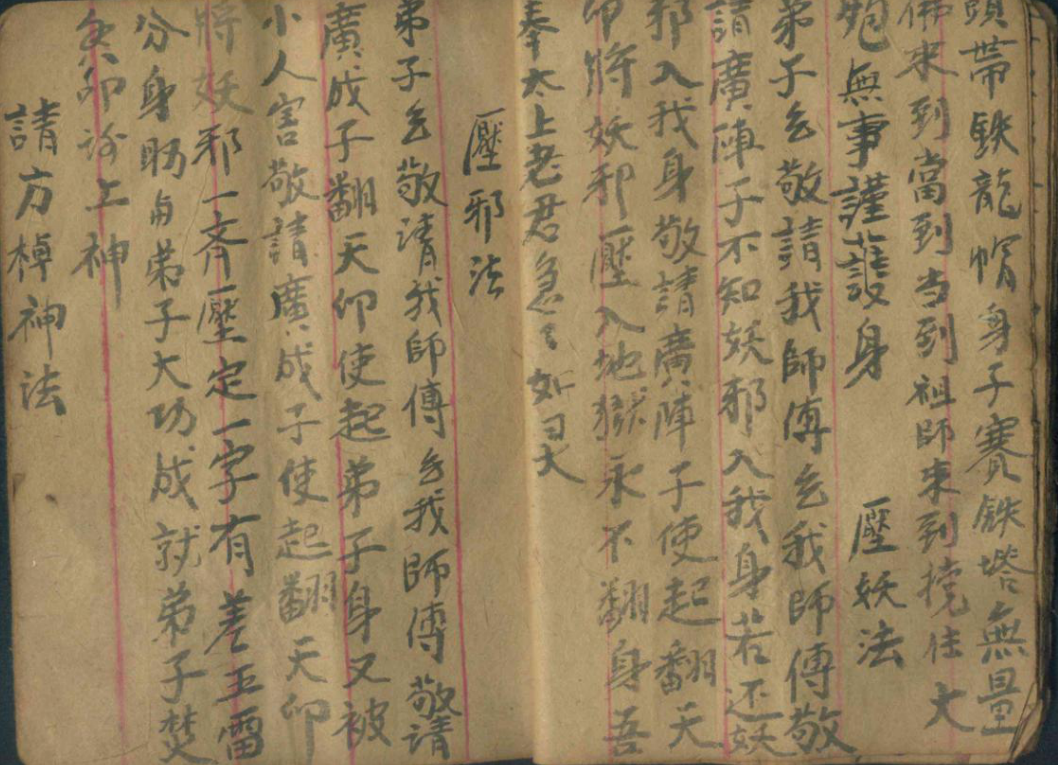 頭帶鉄龍帽身子賽鉄塔無量
佛來到當到当到祖師来到撓住大
炮無事謹護身　壓妖法
弟子乞敬請我師傅乞我師傅敬
請廣陣子不知妖邪入我身若还妖
邪入我身敬請廣陣子使起翻天
印將妖邪壓入地獄永不翻身吾
奉太上老君急々如曰大
壓邪法
弟子乞敬請我師傅乞我師傅敬請
廣成子翻天印使起弟子身又被
小人害敬請廣成子使起翻天印
將妖邪一齐壓定一字有差五雷
分身肠毎弟子大功成就弟子焚
上神
請方棹神法